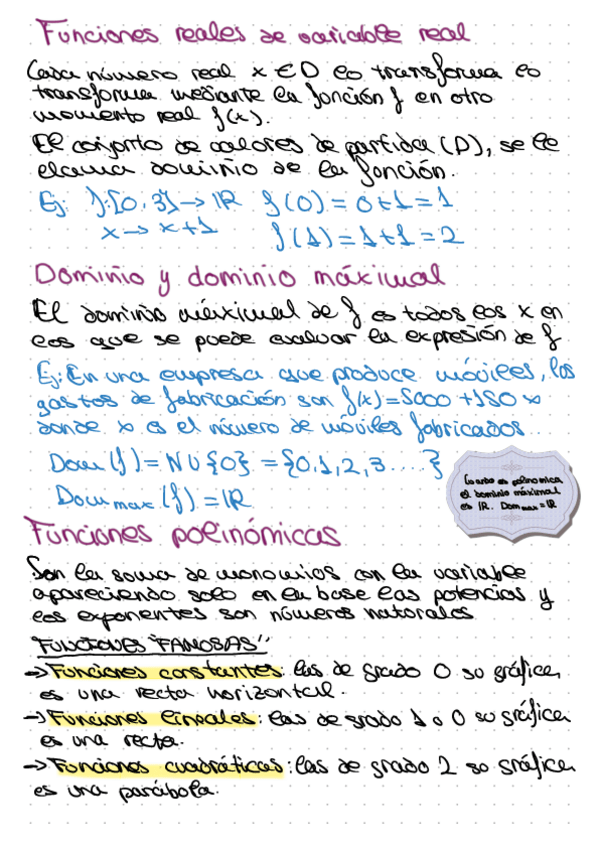 Funciones reales de variable real
Cada número real x ∈ D lo transforma lo
transforma mediante la función f en otro
momento real f(x).
El conjunto de valores de partida (D), se le
llama dominio de la función.
Ej: f:[0,3] → IR f(0) = 0+1 = 1
x → x+1 f(1) = 1+1 = 2
Dominio y dominio máximal
El dominio máximal de f es todos los x en
los que se puede evaluar la expresión de f
Ej: En una empresa que produce móviles, los
gastos de fabricación son f(x) = 5000 + 150 x
donde x es el número de móviles fabricados...
Dom (f) = N ∪ {0} = {0,1,2,3....}
Dom max (f) = IR
Cuando es polinomica
el dominio máximal
es IR. Dom max = IR
Funciones polinómicas
Son la suma de monomios con la variable
apareciendo solo en la base las potencias y
los exponentes son números naturales.
FUNCIONES "FAMOSAS"
→ Funciones constantes: las de grado 0 su gráfica
es una recta horizontal.
→ Funciones lineales: las de grado 1 o 0 su gráfica
es una recta.
→ Funciones cuadráticas: las de grado 2 su gráfica
es una parábola.